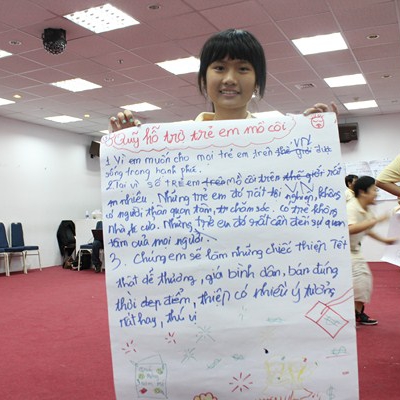 Quỹ hỗ trợ trẻ em mồ côi
1. Vì em muốn cho mọi trẻ em trên thế giới được
VN
sống trong hạnh phúc.
2. Tại vì số trẻ em trên mồ côi trên thế giới rất
em nhiều. Những trẻ em đó rất tội nghiệp, không
có người thân quan tâm, chăm sóc. có trẻ không
nhà, cửa. Những trẻ em đó rất cần đến sự quan
tâm của mọi người.
3. Chúng em sẽ làm những chiếc thiệp Tết
thật dễ thương, giá bình dân, bán đúng
thời điểm, thiệp có nhiều ý tưởng
rất hay, thú vị